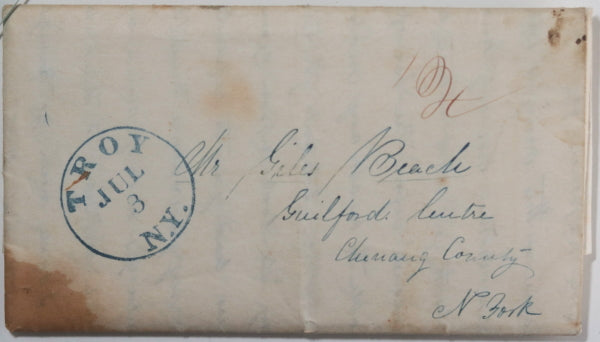 TROY
JUL
3
N.Y.
Mr Giles Beach
Guilford Centre
Chenang County
N York